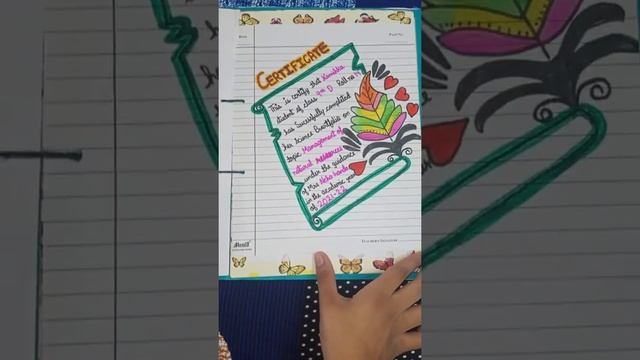 Date
Page No.
CERTIFICATE
This is certify that Kanishka
student of class 9th D Roll no 14
has Successfully completed
her Science Portfolio on
topic Management of
natural Resources
under the guidance
of Mrs Neha
in the academic year
of 2021-22
TEACHER'S SIGNATURE